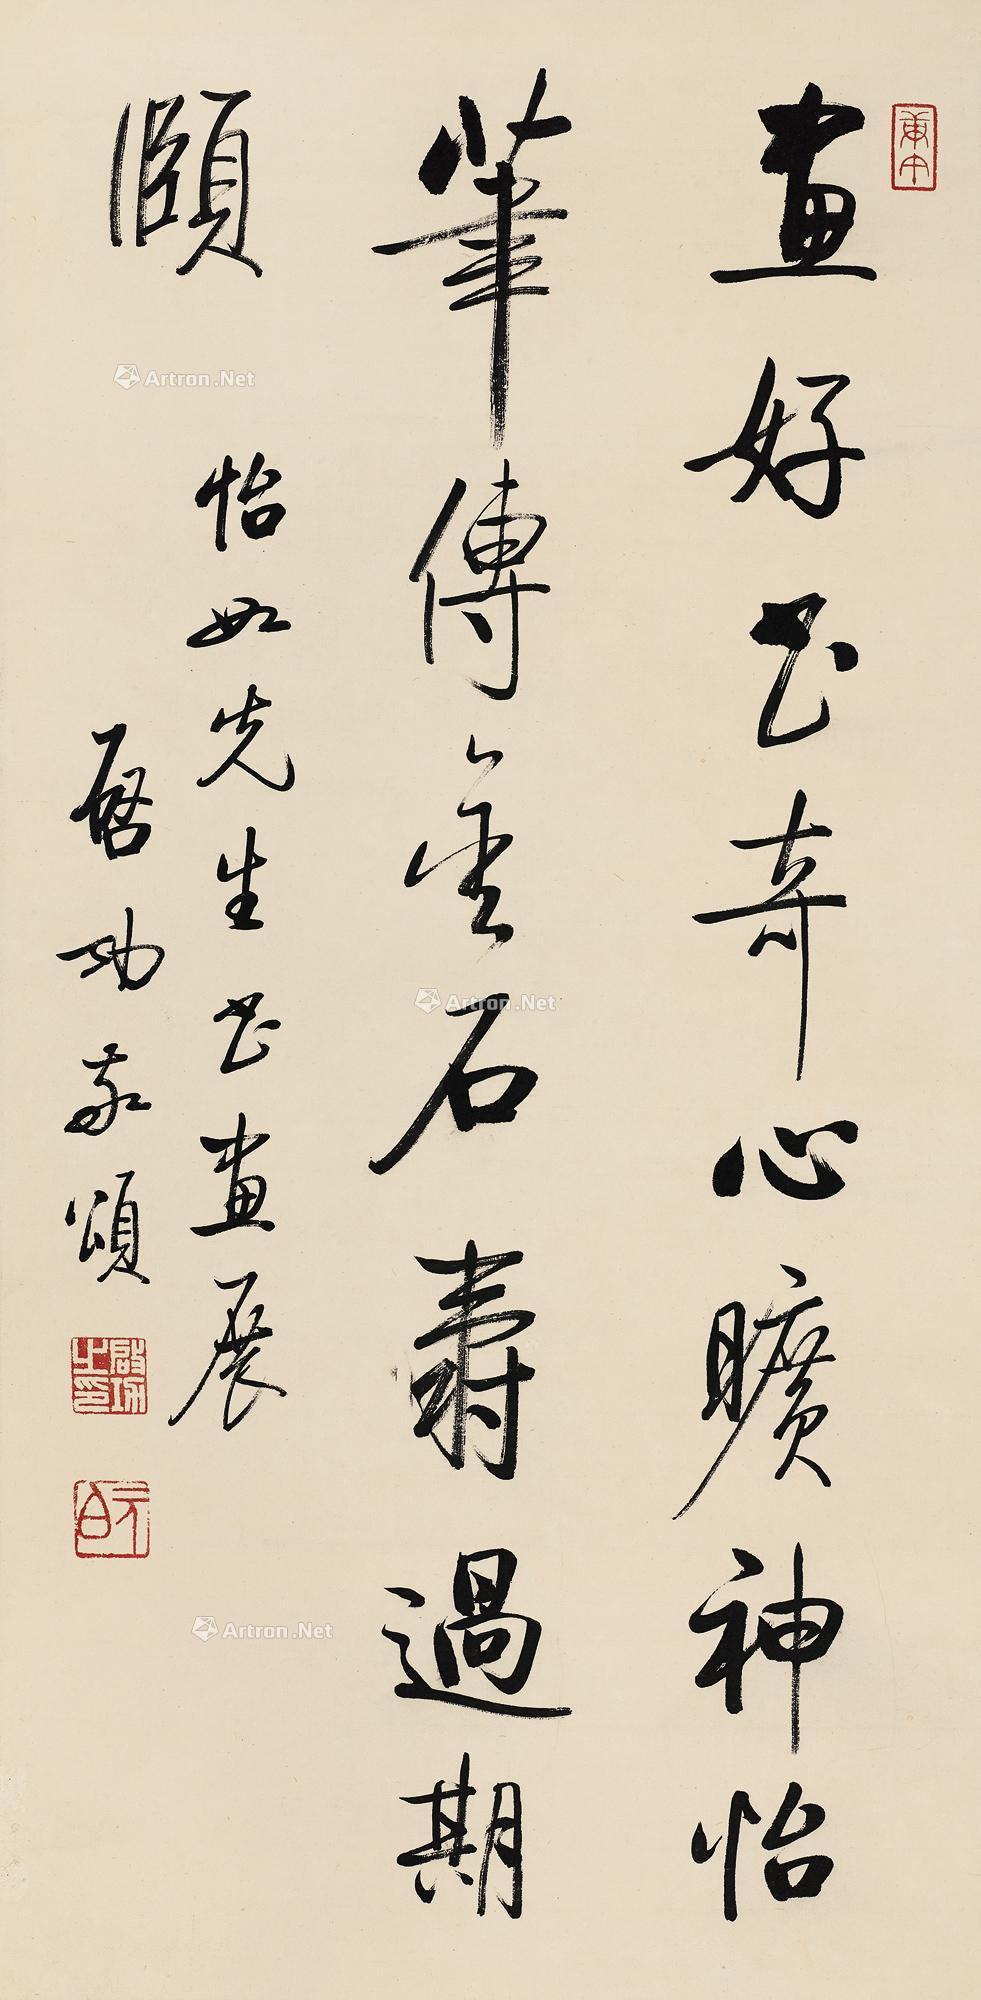 畫好書奇心曠神怡
筆傳金石壽過期
頤
怡如先生書畫展
啓功敬頌
啟功之印
元白
Artron.Net
Artron.Net
Artron.Net